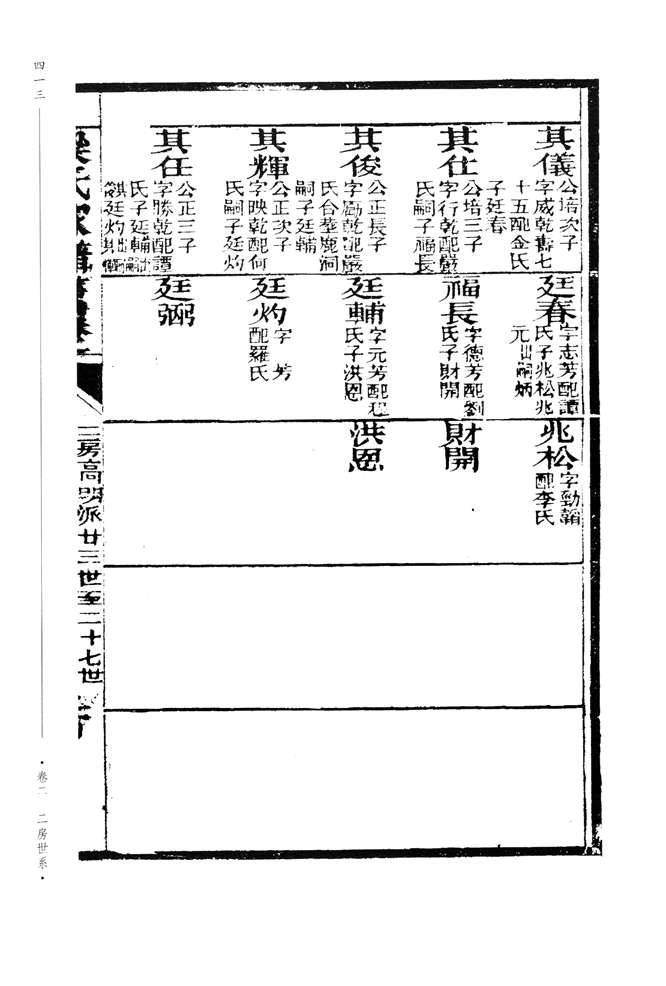 四一三
卷二 二房世系
其儀
公培次子
字威乾壽七
十五配金氏
子廷春
其仕
公培三子
字行乾配嚴
氏嗣子福長
其俊
公正長子
字勵乾配嚴
氏台華鹿洞
嗣子廷輔
其輝
公正次子
字映乾配何
氏嗣子廷灼
其任
公正三子
字勝乾配譚
氏子廷輔
廷灼出嗣
廷春
字志芳配譚
氏子兆松兆
元出嗣炳
福長
字德芳配劉
氏子財開
廷輔
字元芳配程
氏子洪恩
廷灼
字 芳
配羅氏
廷弼
兆松
字勁翰
配李氏
財開
洪恩
梁氏家譜
二房高明派廿三世至二十七世